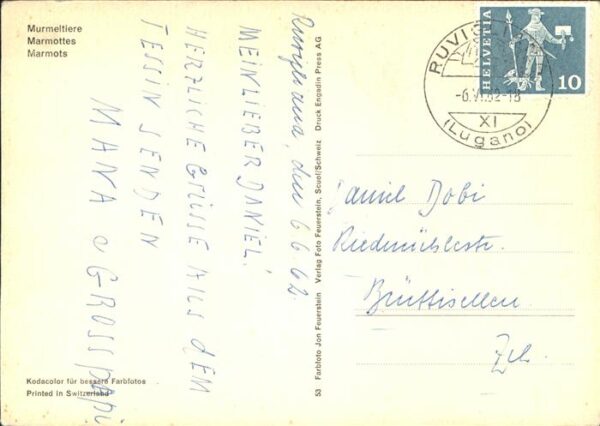 Murmeltiere
Marmottes
Marmots
Ruvigliana, den 6 6 62
MEIN LIEBER DANIEL!
HERZLICHE GRÜSSE AUS DEM
TESSIN SENDEN
MAMA & GROSSPAPI
Kodacolor für bessere Farbfotos
Printed in Switzerland
53 Farbfoto Jon Feuerstein Verlag Foto Feuerstein, Scuol/Schweiz Druck Engadin Press AG
RUVIGLIANA
-6.VI.62-18
XI
(Lugano)
HELVETIA
10
Daniel Dobi
Riedmühlestr.
Brüttisellen
Zch.